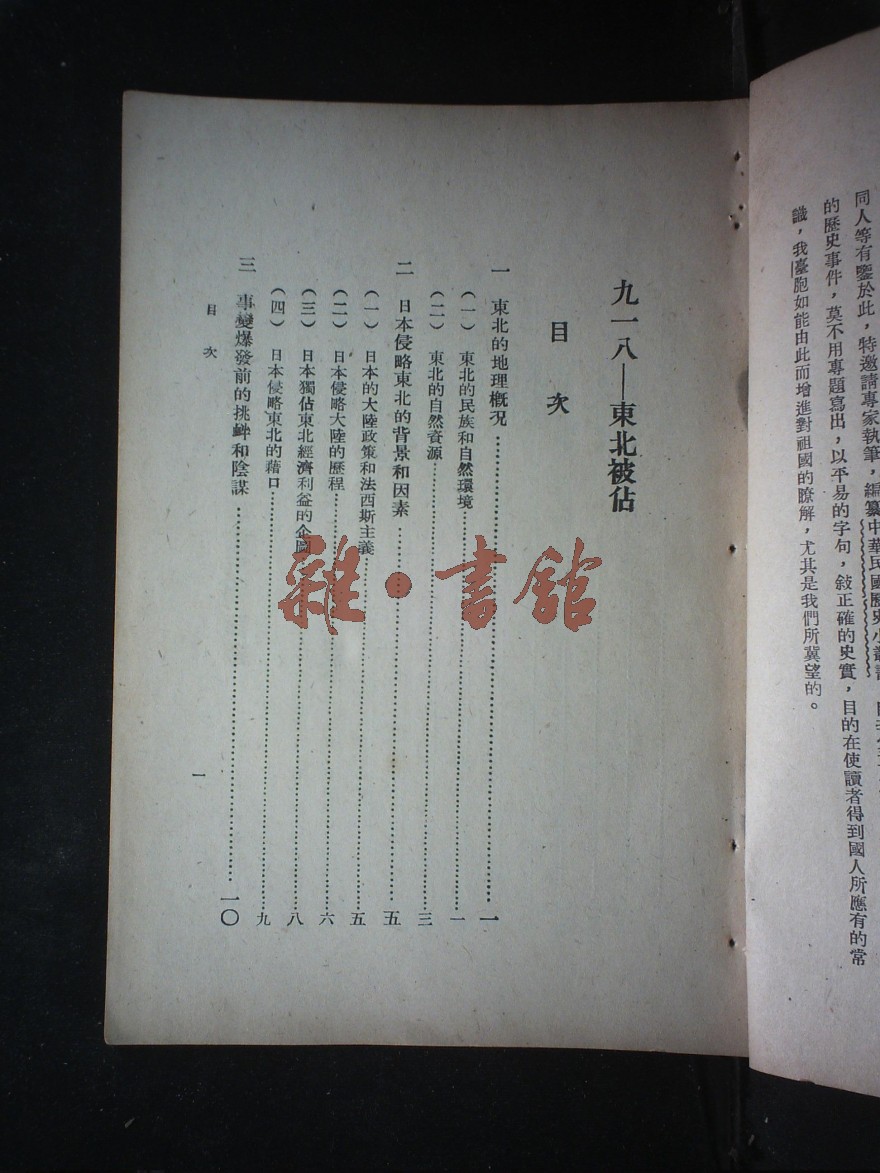 同人等有鑒於此，特邀請專家執筆，編纂中華民國歷史小叢書
的歷史事件，莫不用專題寫出，以平易的字句，敍正確的史實，目的在使讀者得到國人所應有的常
識，我臺胞如能由此而增進對祖國的瞭解，尤其是我們所冀望的。
九一八—東北被佔
目次
一　東北的地理概況…………一
（一）東北的民族和自然環境…………一
（二）東北的自然資源…………三
二　日本侵略東北的背景和因素…………五
（一）日本的大陸政策和法西斯主義…………五
（二）日本侵略大陸的歷程…………六
（三）日本獨佔東北經濟利益的企圖…………八
（四）日本侵略東北的藉口…………九
三　事變爆發前的挑衅和陰謀…………一〇
目次
一
雜·書館